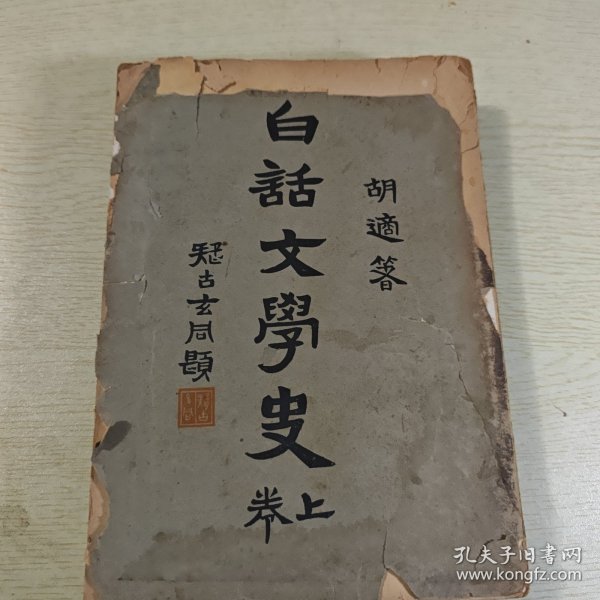 胡適箸
白話文學史
上卷
疑古玄同題
疑古玄同
孔夫子旧书网
www.kongfz.com